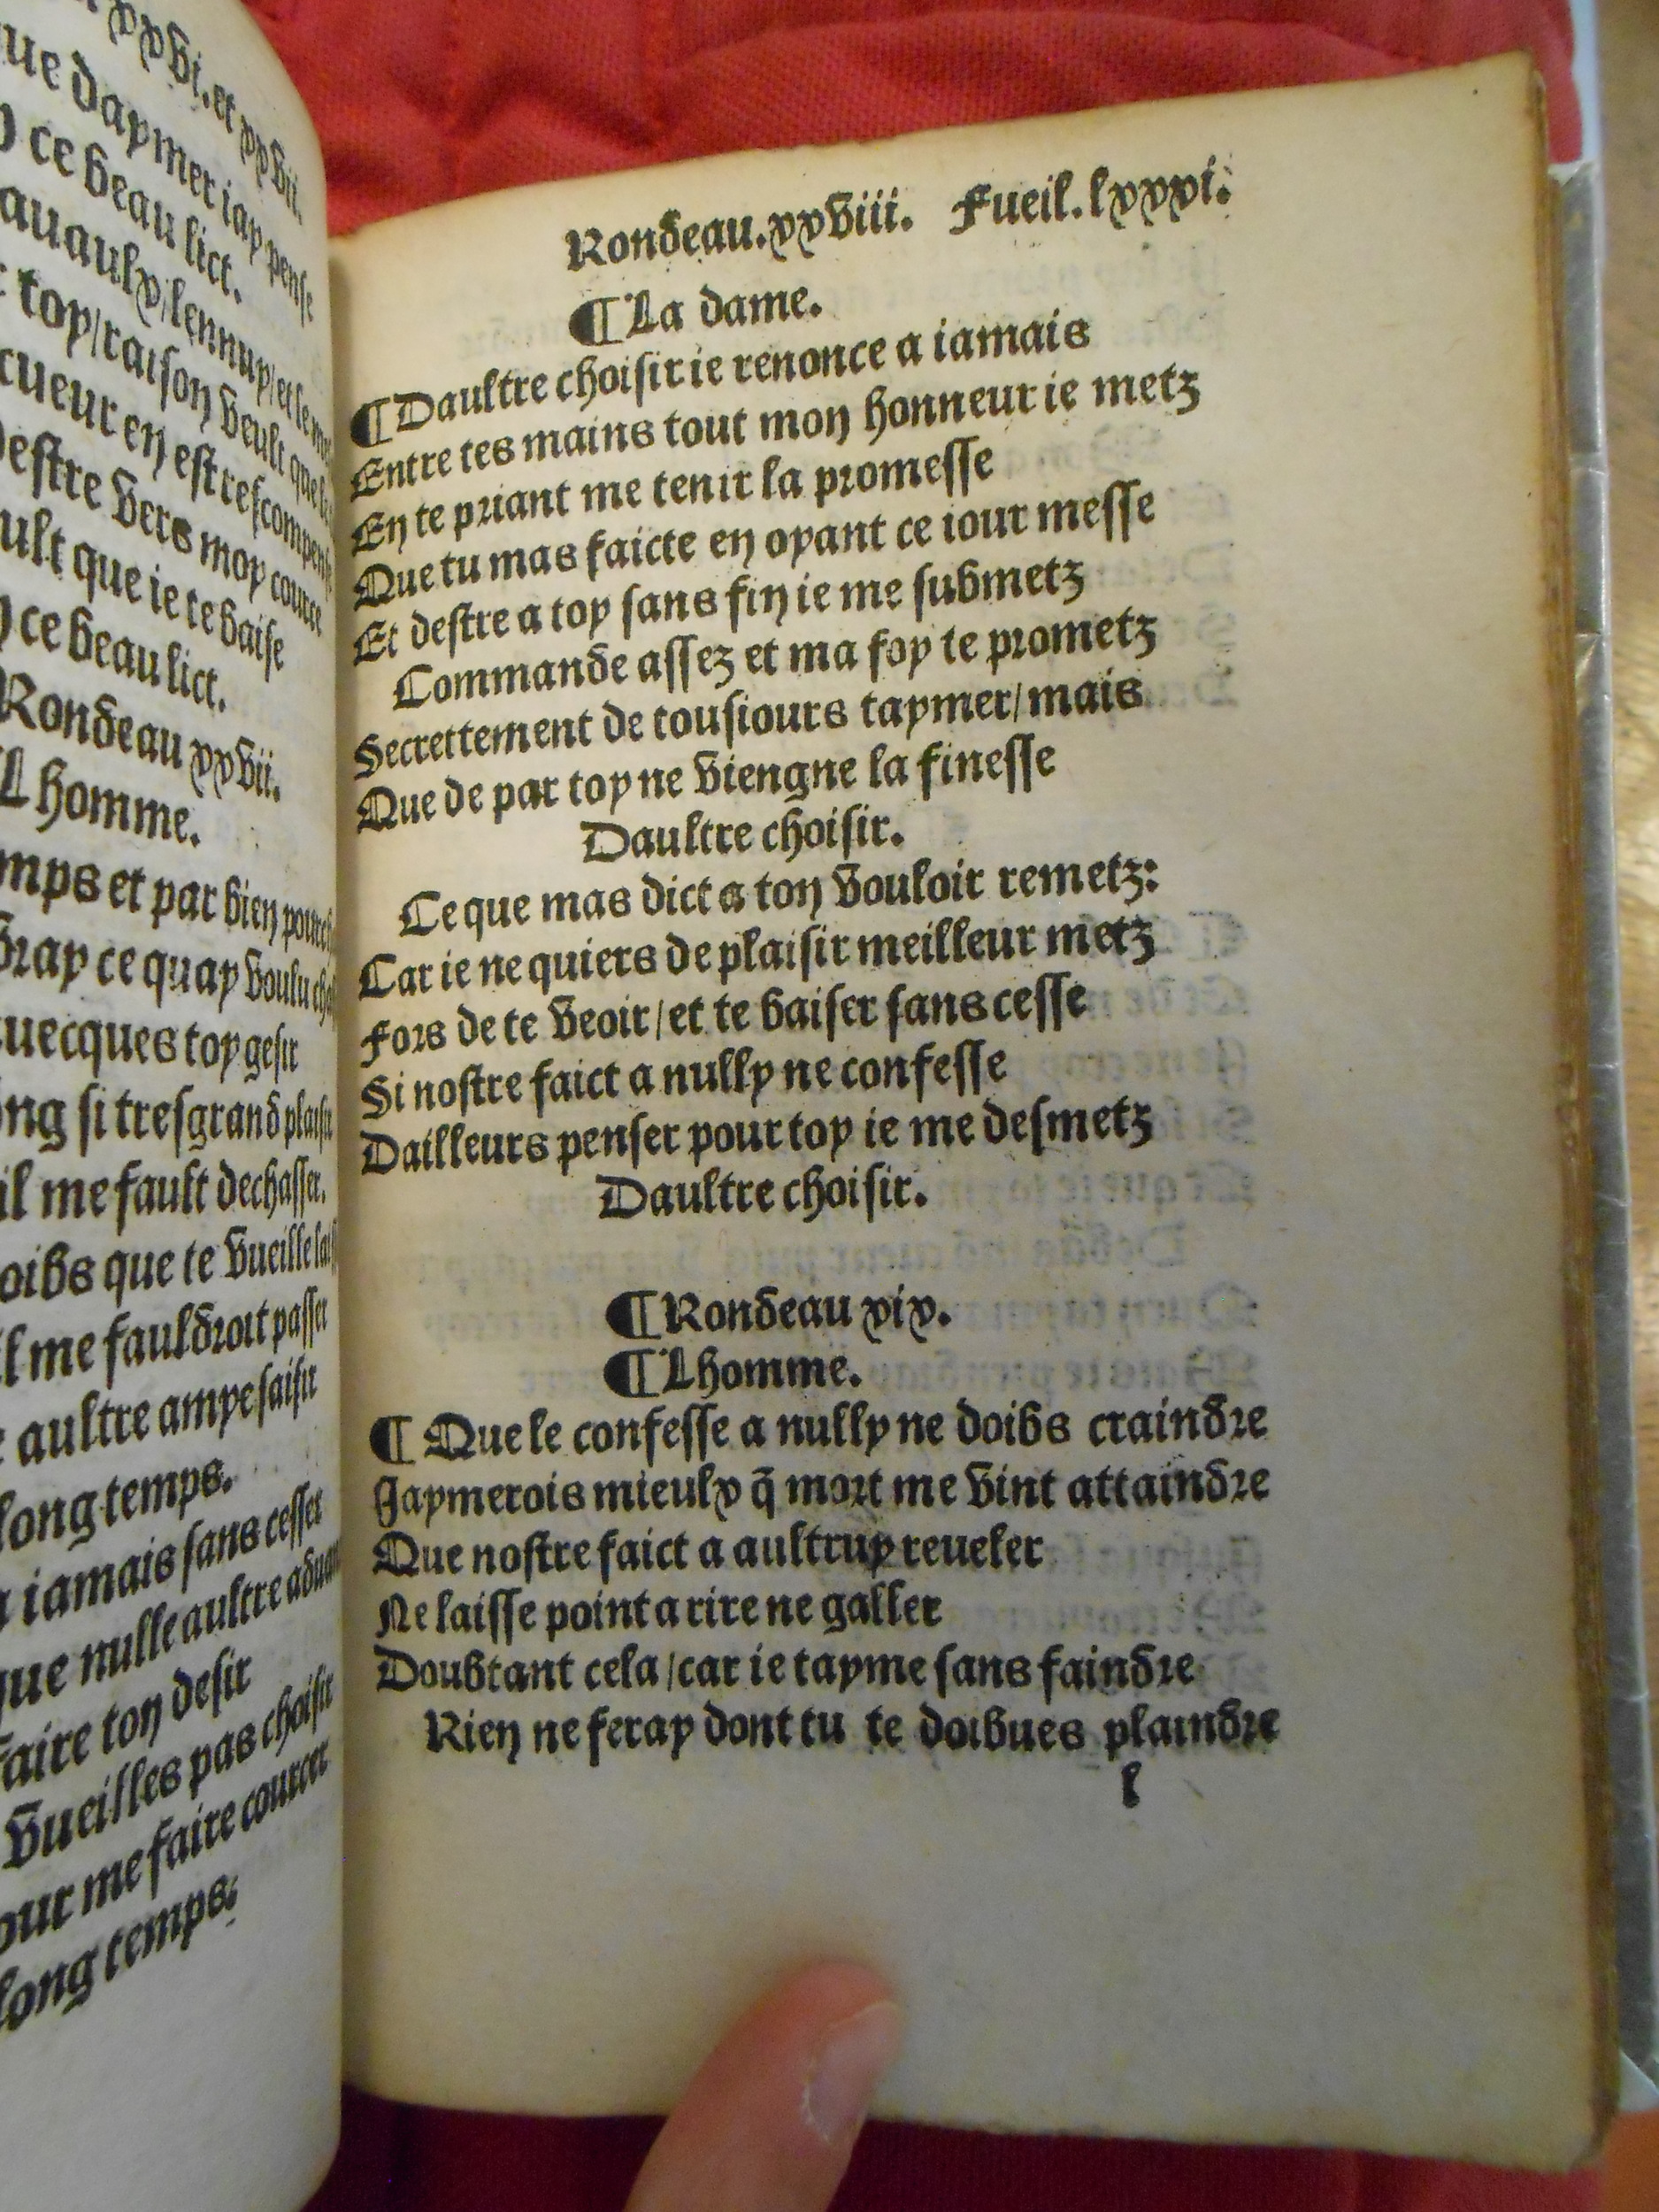 xxvi. et xxvii.
ue daymer iay pense
ce beau lict.
auaulx/lennuy/et le
toy/raison veult que
cueur en est rescompense
estre vers moy cource
ult que ie te baise
ce beau lict.
Rondeau xxvii.
Lhomme.
mps et par bien
dray ce quay voulu
uecques toy gesir
ng si tresgrand plaisir
il me fault dechasser.
oibs que te vueille
l me fauldroit passer
aultre amye saisir
long temps.
iamais sans cesser
que nulle aultre
faire ton desir
vueilles pas choisir
our me faire courcer
long temps.
Rondeau.xxviii. Fueil.lxxxi.
¶La dame.
¶Daultre choisir ie renonce a iamais
Entre tes mains tout mon honneur ie metz
En te priant me tenir la promesse
Que tu mas faicte en oyant ce iour messe
Et destre a toy sans fin ie me submetz
Commande assez et ma foy te prometz
Secrettement de tousiours taymer/mais
Que de par toy ne viengne la finesse
Daultre choisir.
Ce que mas dict a ton vouloir remetz:
Car ie ne quiers de plaisir meilleur metz
Fors de te veoir/et te baiser sans cesse
Si nostre faict a nully ne confesse
Dailleurs penser pour toy ie me desmetz
Daultre choisir.
¶Rondeau xix.
¶Lhomme.
¶Que le confesse a nully ne doibs craindre
Jaymerois mieulx q̃ mort me vint attaindre
Que nostre faict a aultruy reueler
Ne laisse point a rire ne galler
Doubtant cela/car ie tayme sans faindre
Rien ne feray dont tu te doibues plaindre
l